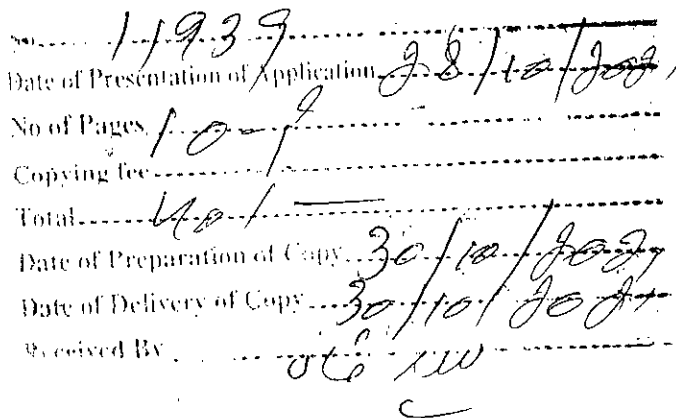 No. 11939
Date of Presentation of Application 28/10/202
No of Pages 10-
Copying fee
Total 40/
Date of Preparation of Copy 30/10/2021
Date of Delivery of Copy 30/10/2021
Received By